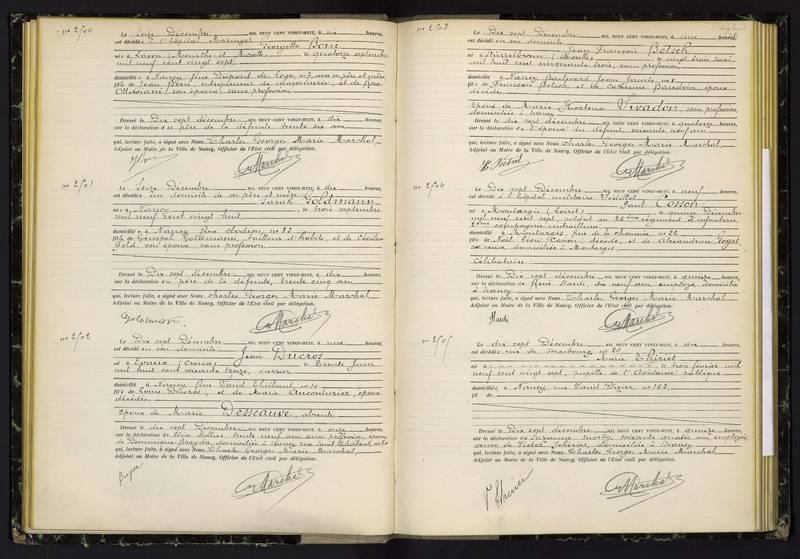 no 2700
Le Seize Décembre MIL NEUF CENT VINGT-HUIT, à six heures,
est décédée à l'hôpital
Georgette
née à (Meurthe et Moselle) le quatorze septembre
mil neuf cent vingt sept,
domiciliée à Nancy, rue Dupont de Loge, no 7, avec ses père et mère
fille de Jean entrepreneur de maçonnerie, et de Rose
(son épouse) sans profession
Dressé le Dix sept décembre MIL NEUF CENT VINGT-HUIT, à dix heures,
sur la déclaration du père de la défunte, trente six ans,
qui, lecture faite, a signé avec Nous Charles Georges Marie Marchal
Adjoint au Maire de la Ville de Nancy, Officier de l'Etat civil par délégation.
no 2701
Le Seize Décembre MIL NEUF CENT VINGT-HUIT, à dix heures,
est décédée au domicile de ses père et mère
Sarah Goldmann
née à Nancy le trois septembre
mil neuf cent vingt huit,
domiciliée à Nancy rue Clodion, no 23
fille de Goldmann, tailleur d'habits, et de
son épouse, sans profession
Dressé le Dix sept décembre MIL NEUF CENT VINGT-HUIT, à dix heures,
sur la déclaration du père de la défunte, trente cinq ans,
qui, lecture faite, a signé avec Nous Charles Georges Marie Marchal
Adjoint au Maire de la Ville de Nancy, Officier de l'Etat civil par délégation.
Goldman
no 2702
Le Dix sept Décembre MIL NEUF CENT VINGT-HUIT, à une heures,
est décédé en son domicile
Jean Ducros
né à Evaux (Creuse) le trente Juin
mil huit cent soixante treize, carrier
domicilié à Nancy, rue Saint Thiébaut, no 10
fils de Louis Ducros, et de Marie Aucouturier, époux
décédés
Epoux de Marie Desseauve, absente
Dressé le dix sept décembre MIL NEUF CENT VINGT-HUIT, à onze heures,
sur la déclaration de Elise trente neuf ans sans profession, épouse
de Dominique domiciliée à Nancy rue Saint Thiébaut, no 10
qui, lecture faite, a signé avec Nous Charles Georges Marie Marchal,
Adjoint au Maire de la Ville de Nancy, Officier de l'Etat civil par délégation.
no 2703
Le Dix sept Décembre MIL NEUF CENT VINGT-HUIT, à une heures,
est décédé en son domicile
Jean François Betsch
né à Sturzelbronn (Moselle) le vingt trois mai
mil huit cent cinquante trois, sans profession,
domicilié à Nancy Boulevard Jean Jaurès, no 1
fils de François Betsch, et de Catherine Baudoin époux
décédés
Epoux de Marie Hortense Vivadon, sans profession,
domiciliée à Nancy
Dressé le dix sept décembre MIL NEUF CENT VINGT-HUIT, à quatorze heures,
sur la déclaration de l'épouse du défunt, soixante neuf ans
qui, lecture faite, a signé avec Nous Charles Georges Marie Marchal,
Adjoint au Maire de la Ville de Nancy, Officier de l'Etat civil par délégation.
no 2704
Le Dix sept Décembre MIL NEUF CENT VINGT-HUIT, à neuf heures,
est décédé à l'hôpital militaire Sédillot
Paul Cosson
né à Montargis (Loiret) le quinze Décembre
mil neuf cent sept, soldat au 26ème régiment d'infanterie
compagnie mitrailleuse
domicilié à Montargis, rue de la chaussée, no 22
fils de Noël Léon Cosson, décédé, et de Alexandrine
sa veuve, domiciliée à Montargis.
Célibataire
Dressé le Dix sept décembre MIL NEUF CENT VINGT-HUIT, à quinze heures,
sur la déclaration de René Hardi, neuf ans employé, domicilié
à Nancy
qui, lecture faite, a signé avec Nous Charles Georges Marie Marchal
Adjoint au Maire de la Ville de Nancy, Officier de l'Etat civil par délégation.
Hardi
no 2705
Le dix sept Décembre MIL NEUF CENT VINGT-HUIT, à dix heures,
est décédée rue de Strasbourg
Marie Thiriet
née à le trois février mil
neuf cent vingt, pupille de l'Assistance publique
domiciliée à Nancy rue Saint Dizier, no 163
fil de
Dressé le Dix sept décembre MIL NEUF CENT VINGT-HUIT, à quinze heures,
sur la déclaration de Suzanne soixante quatre ans employée,
veuve de Victor domiciliée à Nancy
qui, lecture faite, a signé avec Nous Charles Georges Marie Marchal,
Adjoint au Maire de la Ville de Nancy, Officier de l'Etat civil par délégation.